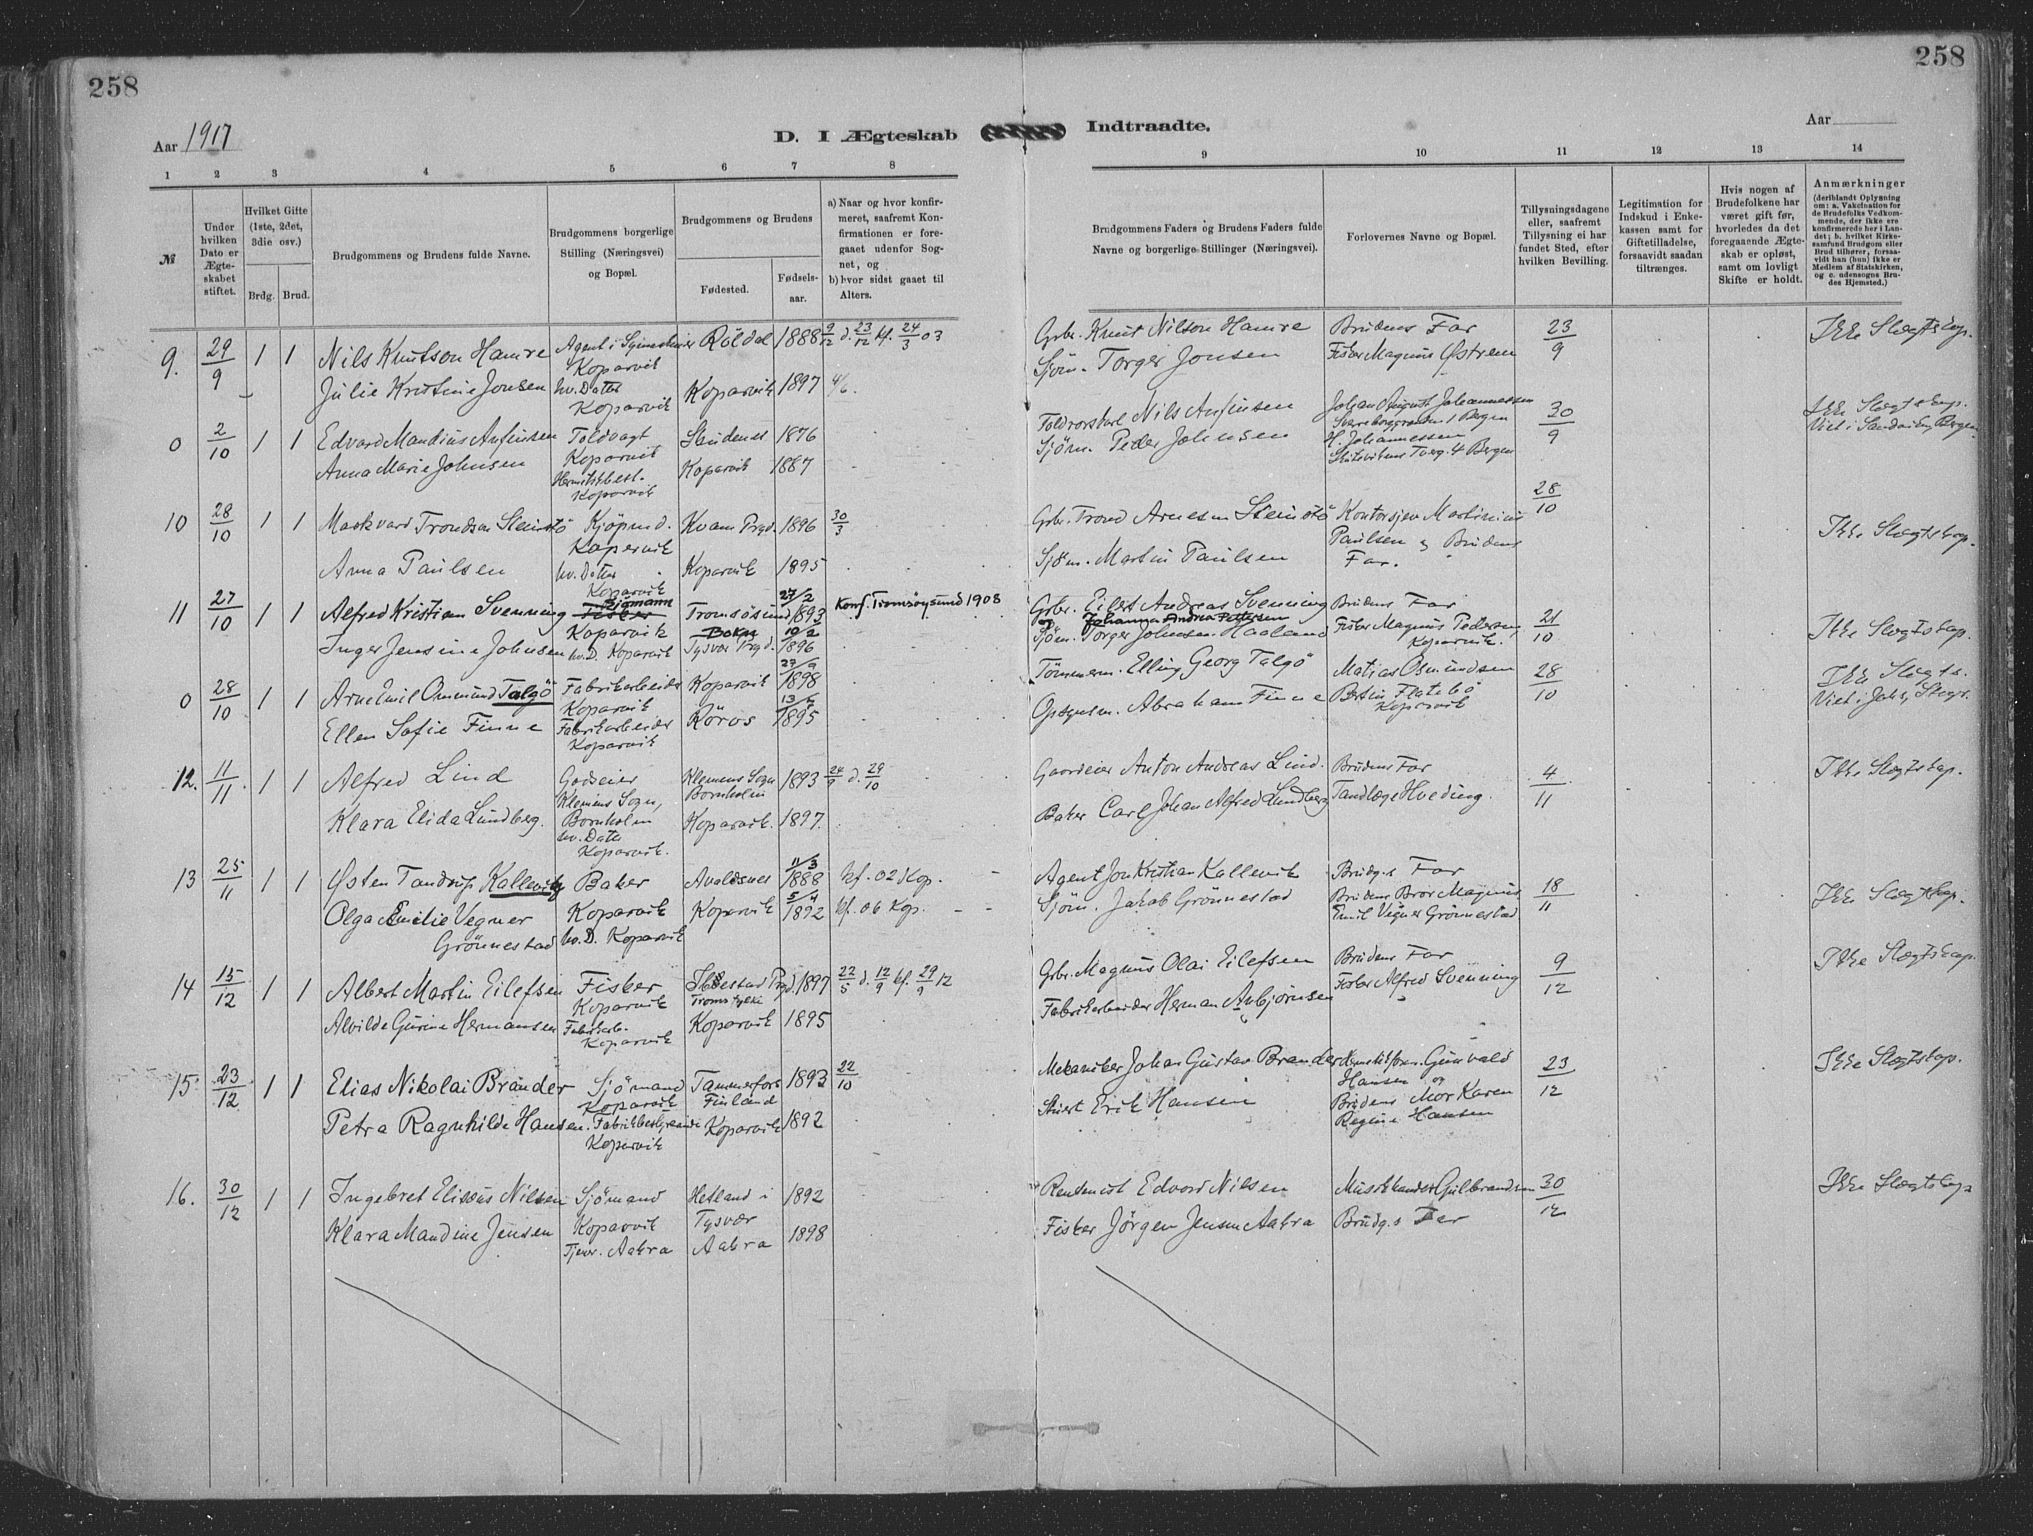 258
258
Aar 1917
D. I Ægteskab Indtraadte.
Aar
1 2 3 4 5 6 7 8 9 10 11 12 13 14
№
Under hvilken Dato er Ægteskabet stiftet.
Hvilket Gifte (1ste, 2det, 3die osv.)
Brdg. Brud.
Brudgommens og Brudens fulde Navne.
Brudgommens borgerlige Stilling (Næringsvei) og Bopæl.
Brudgommens og Brudens
Fødested.
Fødselsaar.
a) Naar og hvor konfirmeret, saafremt Konfirmationen er foregaaet udenfor Sognet, og
b) hvor sidst gaaet til Alters.
Brudgommens Faders og Brudens Faders fulde Navne og borgerlige Stillinger (Næringsvei).
Forlovernes Navne og Bopæl.
Tillysningsdagene eller, saafremt Tillysning ei har fundet Sted, efter hvilken Bevilling.
Legitimation for Indskud i Enkekassen samt for Giftetilladelse, forsaavidt saadan tiltrænges.
Hvis nogen af Brudefolkene har været gift før, hvorledes da det foregaaende Ægteskab er opløst, samt om lovligt Skifte er holdt.
Anmærkninger (deriblandt Oplysning om: a. Vakcination for de Brudefolks Vedkommende, der ikke ere konfirmerede her i Landet; b. hvilket Kirkesamfund Brudgom eller Brud tilhører, forsaavidt han (hun) ikke er Medlem af Statskirken, og c. udensogns Brudes Hjemsted.)
9. 29/9 1 1 Nils Knutson Hamre Agent i Koparvik Röldal 1888 9/12 d. 23/12 kf. 24/3 03 Grbr. Knut Nilson Hamre Brudens Far 23/9 Ikke Slægtskap.
Julie Kristine Jonsen hv. Datter Koparvik Koparvik 1897 Sjöm. Torger Jonsen Fisker Magnus Østrem
0 2/10 1 1 Edvard Mandius Anfinsen Toldvagt Koparvik Skudenes 1876 Nils Anfinsen Johan August Johannessen Bergen 30/9 Ikke Slægtskap. Viet i Sandviken, Bergen
Anna Marie Johnsen Koparvik Koparvik 1887 Sjöm. Peder Johnsen H. Johannessen 4 Bergen
10 28/10 1 1 Markvard Trondsen Steinstö Kjöpmd. Kopervik Kvam Prgd. 1896 30/3 Grbr. Trond Arnesen Steinstö Kontorsjev Martinius Paulsen og Brudens Far. 28/10 Ikke Slægtskap.
Anna Paulsen hv. Datter Koparvik Koparvik 1895 Sjöm. Martin Paulsen
11 27/10 1 1 Alfred Kristian Svenning Fisker Sjømann Koparvik Tromsösund 27/2 1893 Konf. Tromsøysund 1908 Grbr. Eilert Andreas Svenning og Johanna Andrea Pettersen Brudens Far 21/10 Ikke Slægtskap.
Inger Jensine Johnsen hv. D. Koparvik Bokn Tysvær Prgd. 10/2 1896 Sjöm. Torger Johnsen Haaland Fisker Magnus Pedersen, Koparvik.
0 28/10 1 1 Arne Emil Ommund Talgö Fabrikarbeider Koparvik Koparvik 27/9 1898 Tömmerm. Elling Georg Talgö Matias Osmundsen 28/10 Ikke Slægts. Viet i
Ellen Sofie Finne Fabrikarbeider Koparvik Röros 1895 Opsynsm. Abraham Finne Bertin Flatebö Koparvik
12. 11/11 1 1 Alfred Lind Godseier Klemens Sogn, Bornholm Klemens Sogn Bornholm 1893 24/9 d. 29/10 Gaardeier Anton Andreas Lind. Brudens Far 4/11 Ikke Slægtskap.
Klara Elida Lundberg. hv. Datter Koparvik. Koparvik. 1897. Baker Carl Johan Alfred Lundberg Tandlæge Hveding.
13 25/11 1 1 Østen Tandrup Kallevig Baker Koparvik Avaldsnes 11/3 1888 kf. 02 Kop. Agent Jon Kristian Kallevik Brudg.s Far 18/11 Ikke Slægtskap.
Olga Emilie Vegner Grönnestad hv. D. Koparvik Koparvik 5/4 1892 kf. 06 Kop. Sjöm. Jakob Grönnestad Brudens Bror Magnus Emil Vegner Grönnestad
14 15/12 1 1 Albert Martin Eilefsen Fisker Koparvik Prgd. Troms fylke 1897 22/5 d. 12/9 kf. 29/9 12 Grbr. Magnus Olai Eilefsen Brudens Far 9/12 Ikke Slægtskap.
Alvilde Gurine Hermansen Fabrikarb. Koparvik Koparvik 1895 Fabrikarbeider Herman Asbjörnsen Fisker Alfred Svenning
15. 23/12 1 1 Elias Nikolai Brander Sjömand Koparvik Tammerfors Finland 1893 22/10 Mekaniker Johan Gustav Brander Gunvald Hansen og Brudens Mor Karen Regine Hansen 23/12 Ikke Slægtskap.
Petra Ragnhilde Hansen. Koparvik Koparvik 1892 Stuert Erik Hansen
16. 30/12 1 1 Ingebret Eliseus Nilsen Sjömand Koparvik Hetland i Tysvær 1892 Rentenist Edvard Nilsen Gulbrandsen 30/12 Ikke Slægtskap
Klara Mandine Jensen Tjen. Aakra Aakra 1898 Fisker Jörgen Jensen Aakra Brudg.s Far